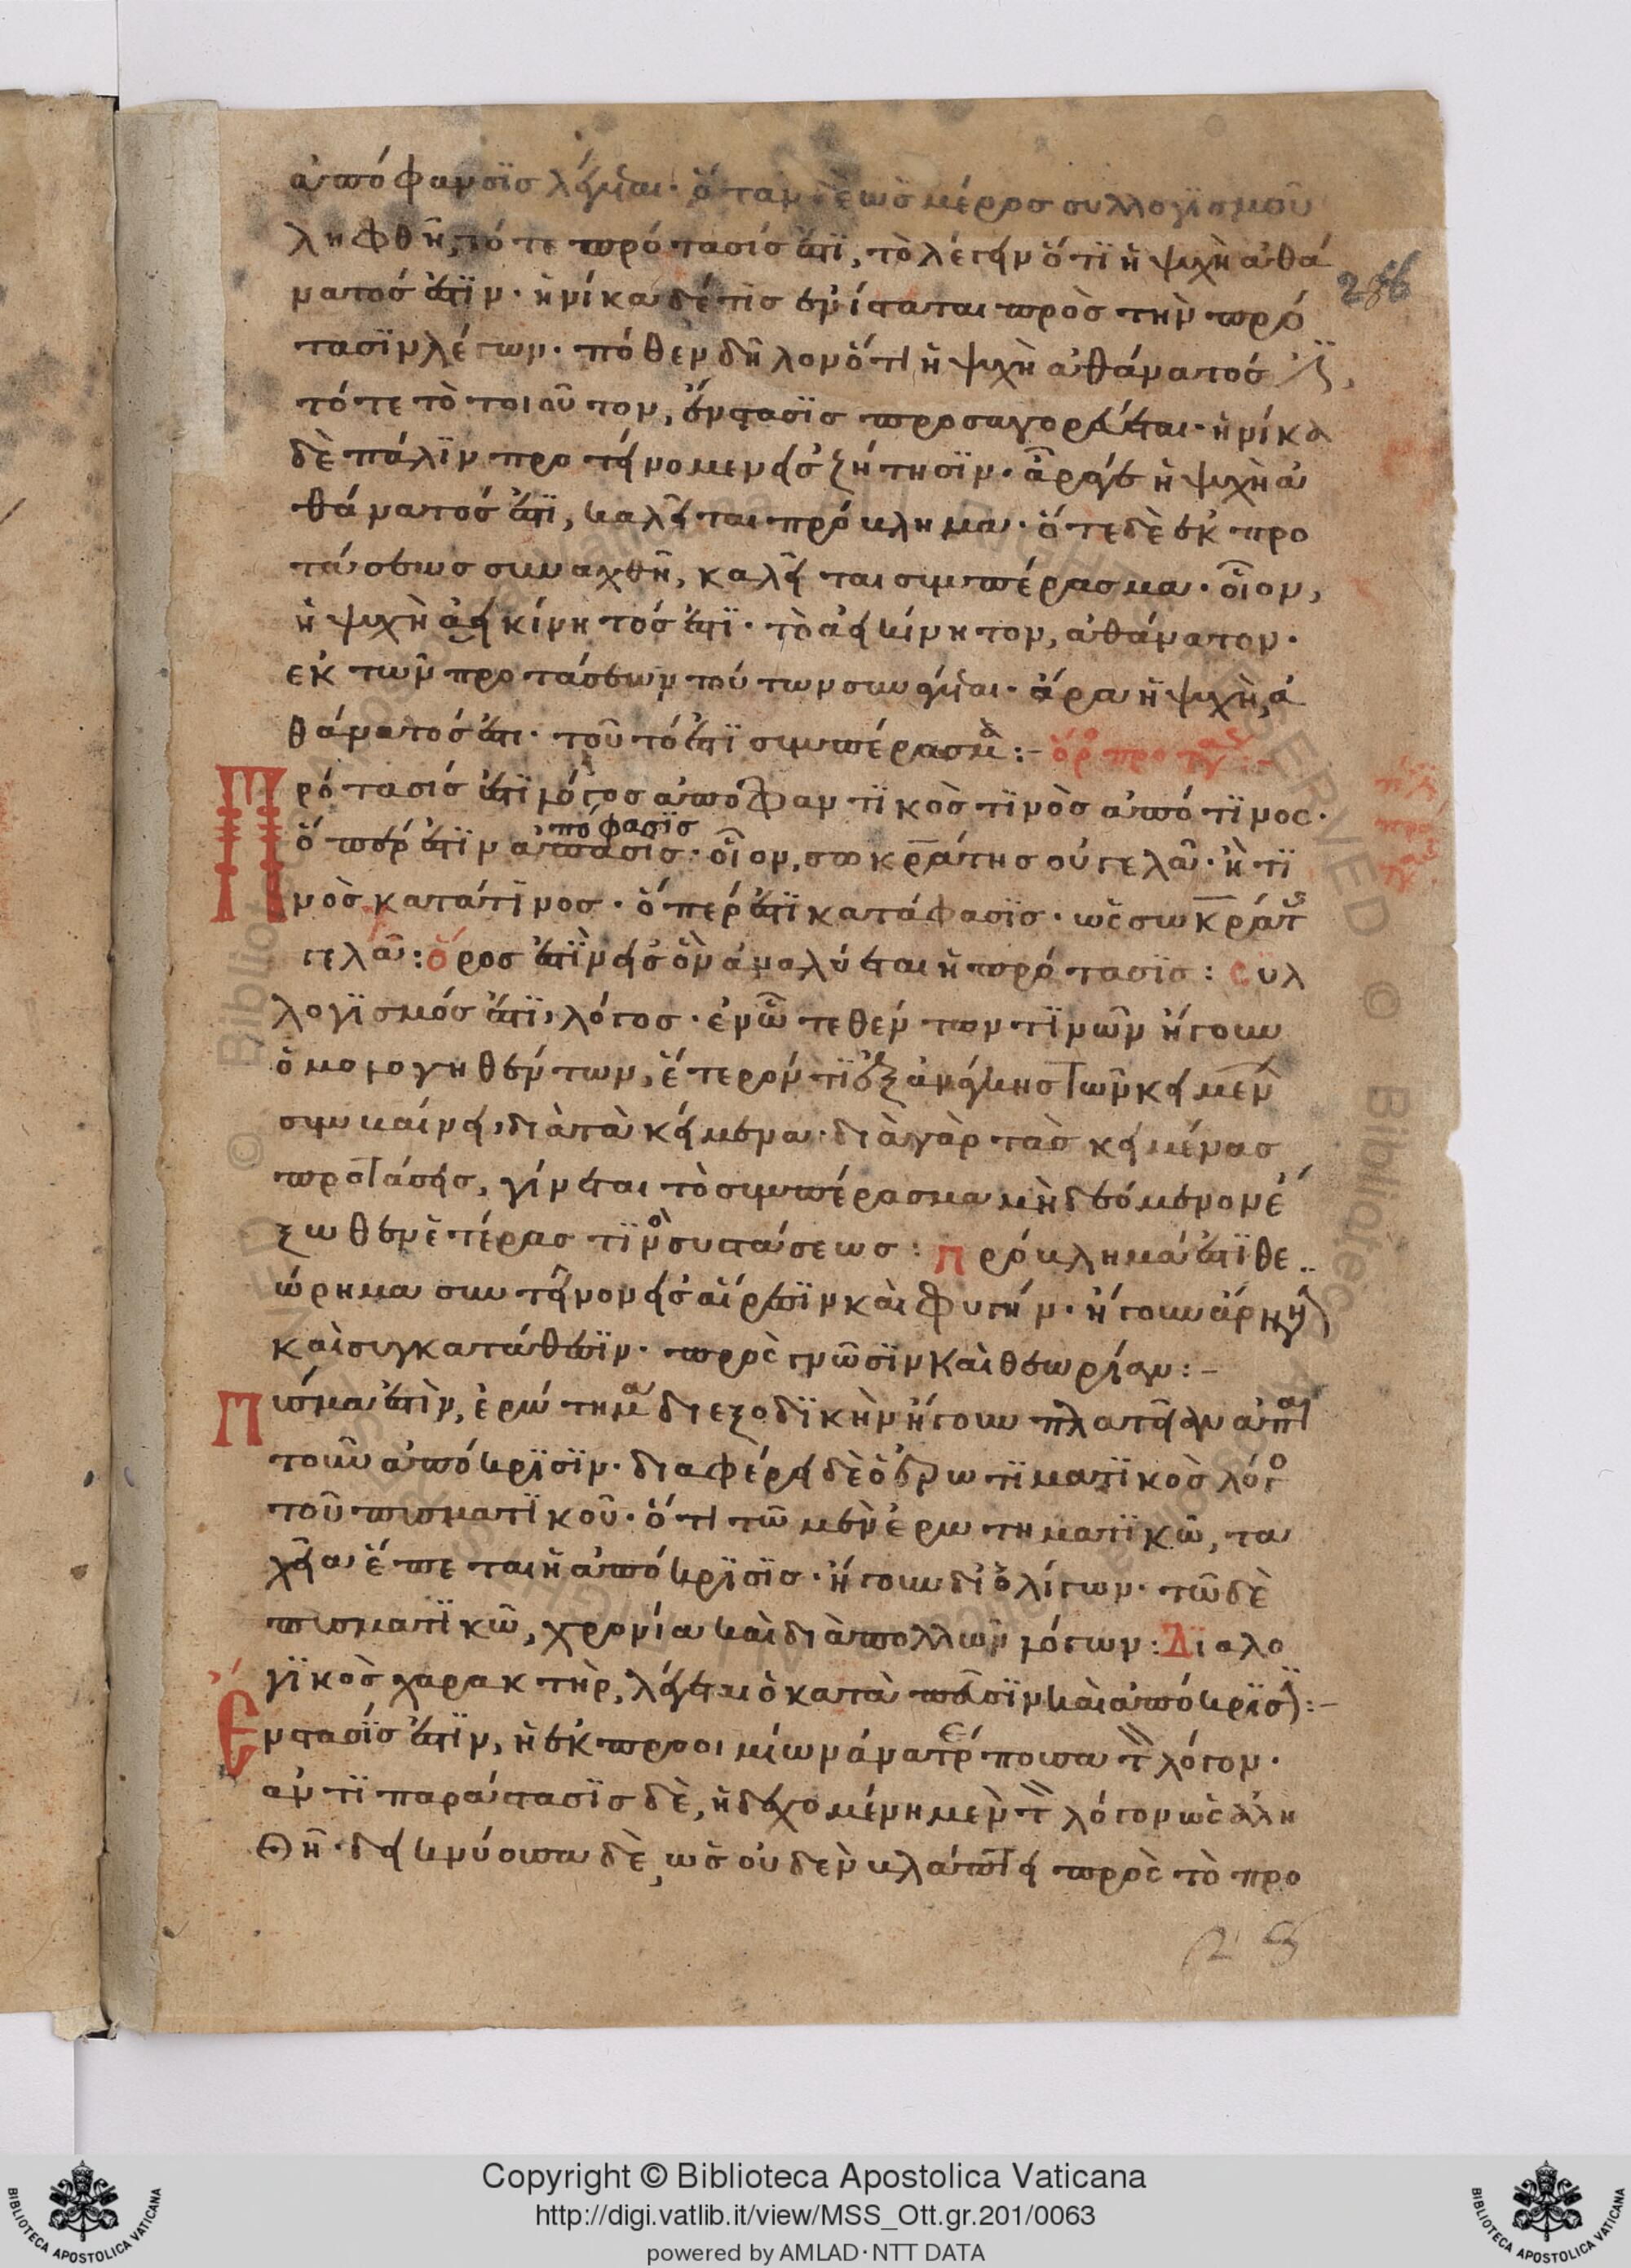 ἀπόφανσϊς λέγεται· ὅταν δὲ ὡς μέρος συλλογϊσμοῦ
ληφθῆ, τότε πρότασίς ἐστϊ, τὸ λέγειν ὅτϊ ἡ ψυχὴ ἀθά
νατός ἐστϊν· ἡνίκα δέ τις ἐνίσταται πρὸς τὴν πρό
286
τασϊν λέγων· πόθεν δῆλον ὅτι ἡ ψυχὴ ἀθάνατός
τότε τὸ τοιοῦτον, ἔνστασϊς προσαγορεύεται· ἡνίκα
δὲ πάλϊν προτεινομεν εἰς ζήτησϊν· ἆράγε ἡ ψυχὴ ἀ
θάνατός ἐστϊ, καλεῖται πρόβλημα· ὅτε δὲ ἐκ προ
τάσεως συναχθῆ, καλεῖται συμπέρασμα· οἷον,
ἡ ψυχὴ ἀεικίνητός ἐστι· τὸ ἀεικίνητον, ἀθάνατον·
ἐκ τῶν προτάσεων τούτων συνάγεται· ἄρα ἡ ψυχὴ ἀ
θάνατός ἐστι· τοῦτό ἐστϊ συμπέρασμα :-
Πρότασίς ἐστϊ λόγος ἀποφαντϊκὸς τϊνὸς ἀπό τϊνος·
πόφασϊς
ὅπέρ ἐστϊν ἀπασϊς· οἷον, σωκράτης οὐ γελᾶ· ἢ τϊ
νὸς κατάτϊνος· ὅπερ ἐστϊ κατάφασϊς· ὡς σωκράτης
γελᾶ: ὅρος ἐστϊν εἰς ὃν ἀναλύεται ἡ πρότασϊς: Συλ
λογϊσμός ἐστϊ λόγος· ἐν ὧ τεθέντων τϊνῶν ἤγουν
ὁμολογηθέντων, ἕτερόν τϊ ἐξ ἀνάγκης τῶν κειμένων
συμβαίνει, διὰ τὰ κείμενα· διὰ γὰρ τὰς κειμένας
προτάσεις, γίνεται τὸ συμπέρασμα μὴ δεόμενον ἔ
ξωθεν ἑτέρας τϊνὸς συστάσεως: Πρόβλημά ἐστϊ θε
ώρημα συντεῖνον εἰς αἵρεσϊν καὶ φυγήν· ἤγουν ἄρνησιν
καὶ συγκατάθεσϊν· πρὸς γνῶσϊν καὶ θεωρίαν :-
Πύσμα ἐστὶν, ἐρώτημα διεξοδϊκὴν ἤγουν πλατεῖαν ἀπαι
τοῦν ἀπόκρϊσϊν· διαφέρει δὲ ὁ ἐρωτϊματϊκὸς λόγος
τοῦ πυσματϊκοῦ· ὅτι τῶ μὲν ἐρωτηματϊκῶ, τα
χεῖα ἕπεται ἡ ἀπόκρϊσϊς· ἤγουν δι' ὀλίγων· τῶ δὲ
πυσματϊκῶ, χρονία καὶ διὰ πολλῶν λόγων: Διαλο
γϊκὸς χαρακτὴρ, λέγεται ὁ κατὰ πεῦσϊν καὶ ἀπόκρϊσιν :-
Ἔνστασϊς ἐστϊν, ἡ ἐκ προοιμίων ἀνατρέπουσα τὸν λόγον·
ἀντϊπαράστασϊς δὲ, ἡ δεχομένη μὲν τὸν λόγον ὡς ἀλη
θῆ· δεικνύουσα δὲ, ὡς οὐδὲν βλάπτει πρὸς τὸ προ
Copyright © Biblioteca Apostolica Vaticana
http://digi.vatlib.it/view/MSS_Ott.gr.201/0063
powered by AMLAD·NTT DATA